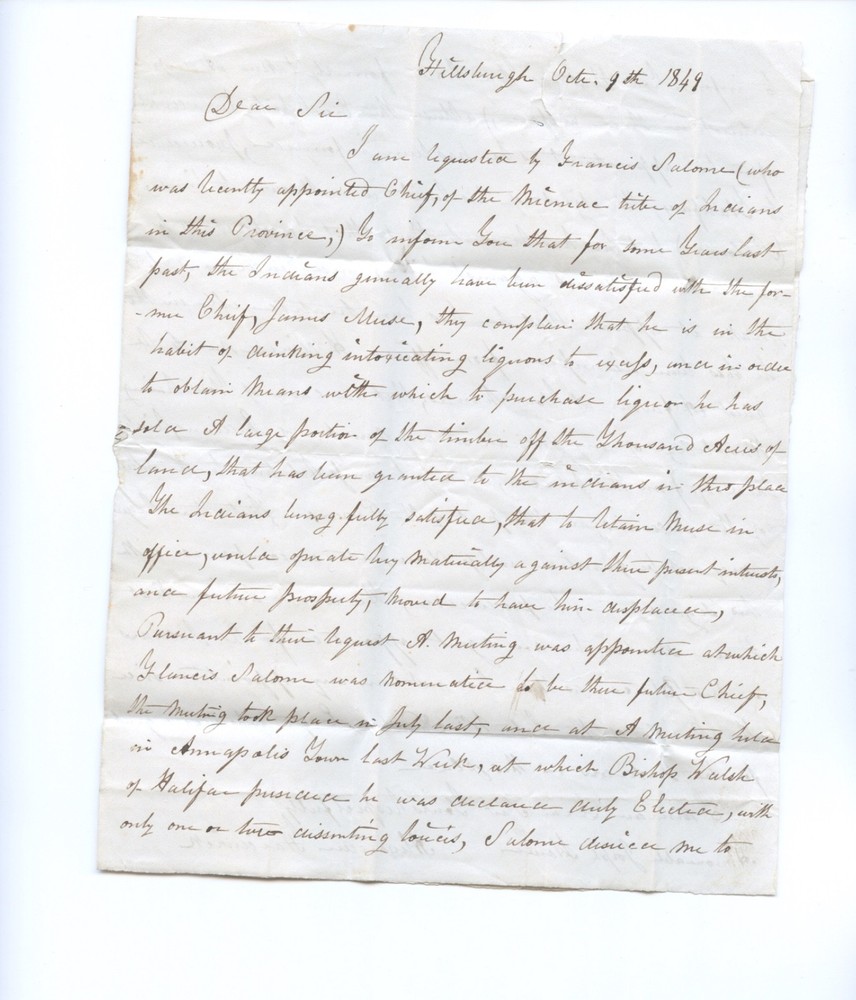 Hillsburgh Octr. 9th 1849
Dear Sir
I am requested by Francis Salome (who
was recently appointed Chief, of the Micmac tribe of Indians
in this Province,) To inform You that for some Years last
past, the Indians generally have been dissatisfied with the for-
-mer Chief, James Muse, they complain that he is in the
habit of drinking intoxicating liquors to excess, and in order
to obtain Means with which to purchase liquor he has
sold A large portion of the timber off the Thousand Acres of
land, that has been granted to the indians in this place
The Indians being fully satisfied, that to retain Muse in
office, would operate very Materially against their present interests,
and future prosperity, Moved to have him displaced,
Pursuant to their request A. Meeting was appointed at which
Francis Salome was nominated to be their future Chief,
the Meeting took place in July last, and at A Meeting held
in Annapolis Town last Week, at which Bishop Walsh
of Halifax presided he was declared duly Elected, with
only one or two dissenting voices, Salome desired me to